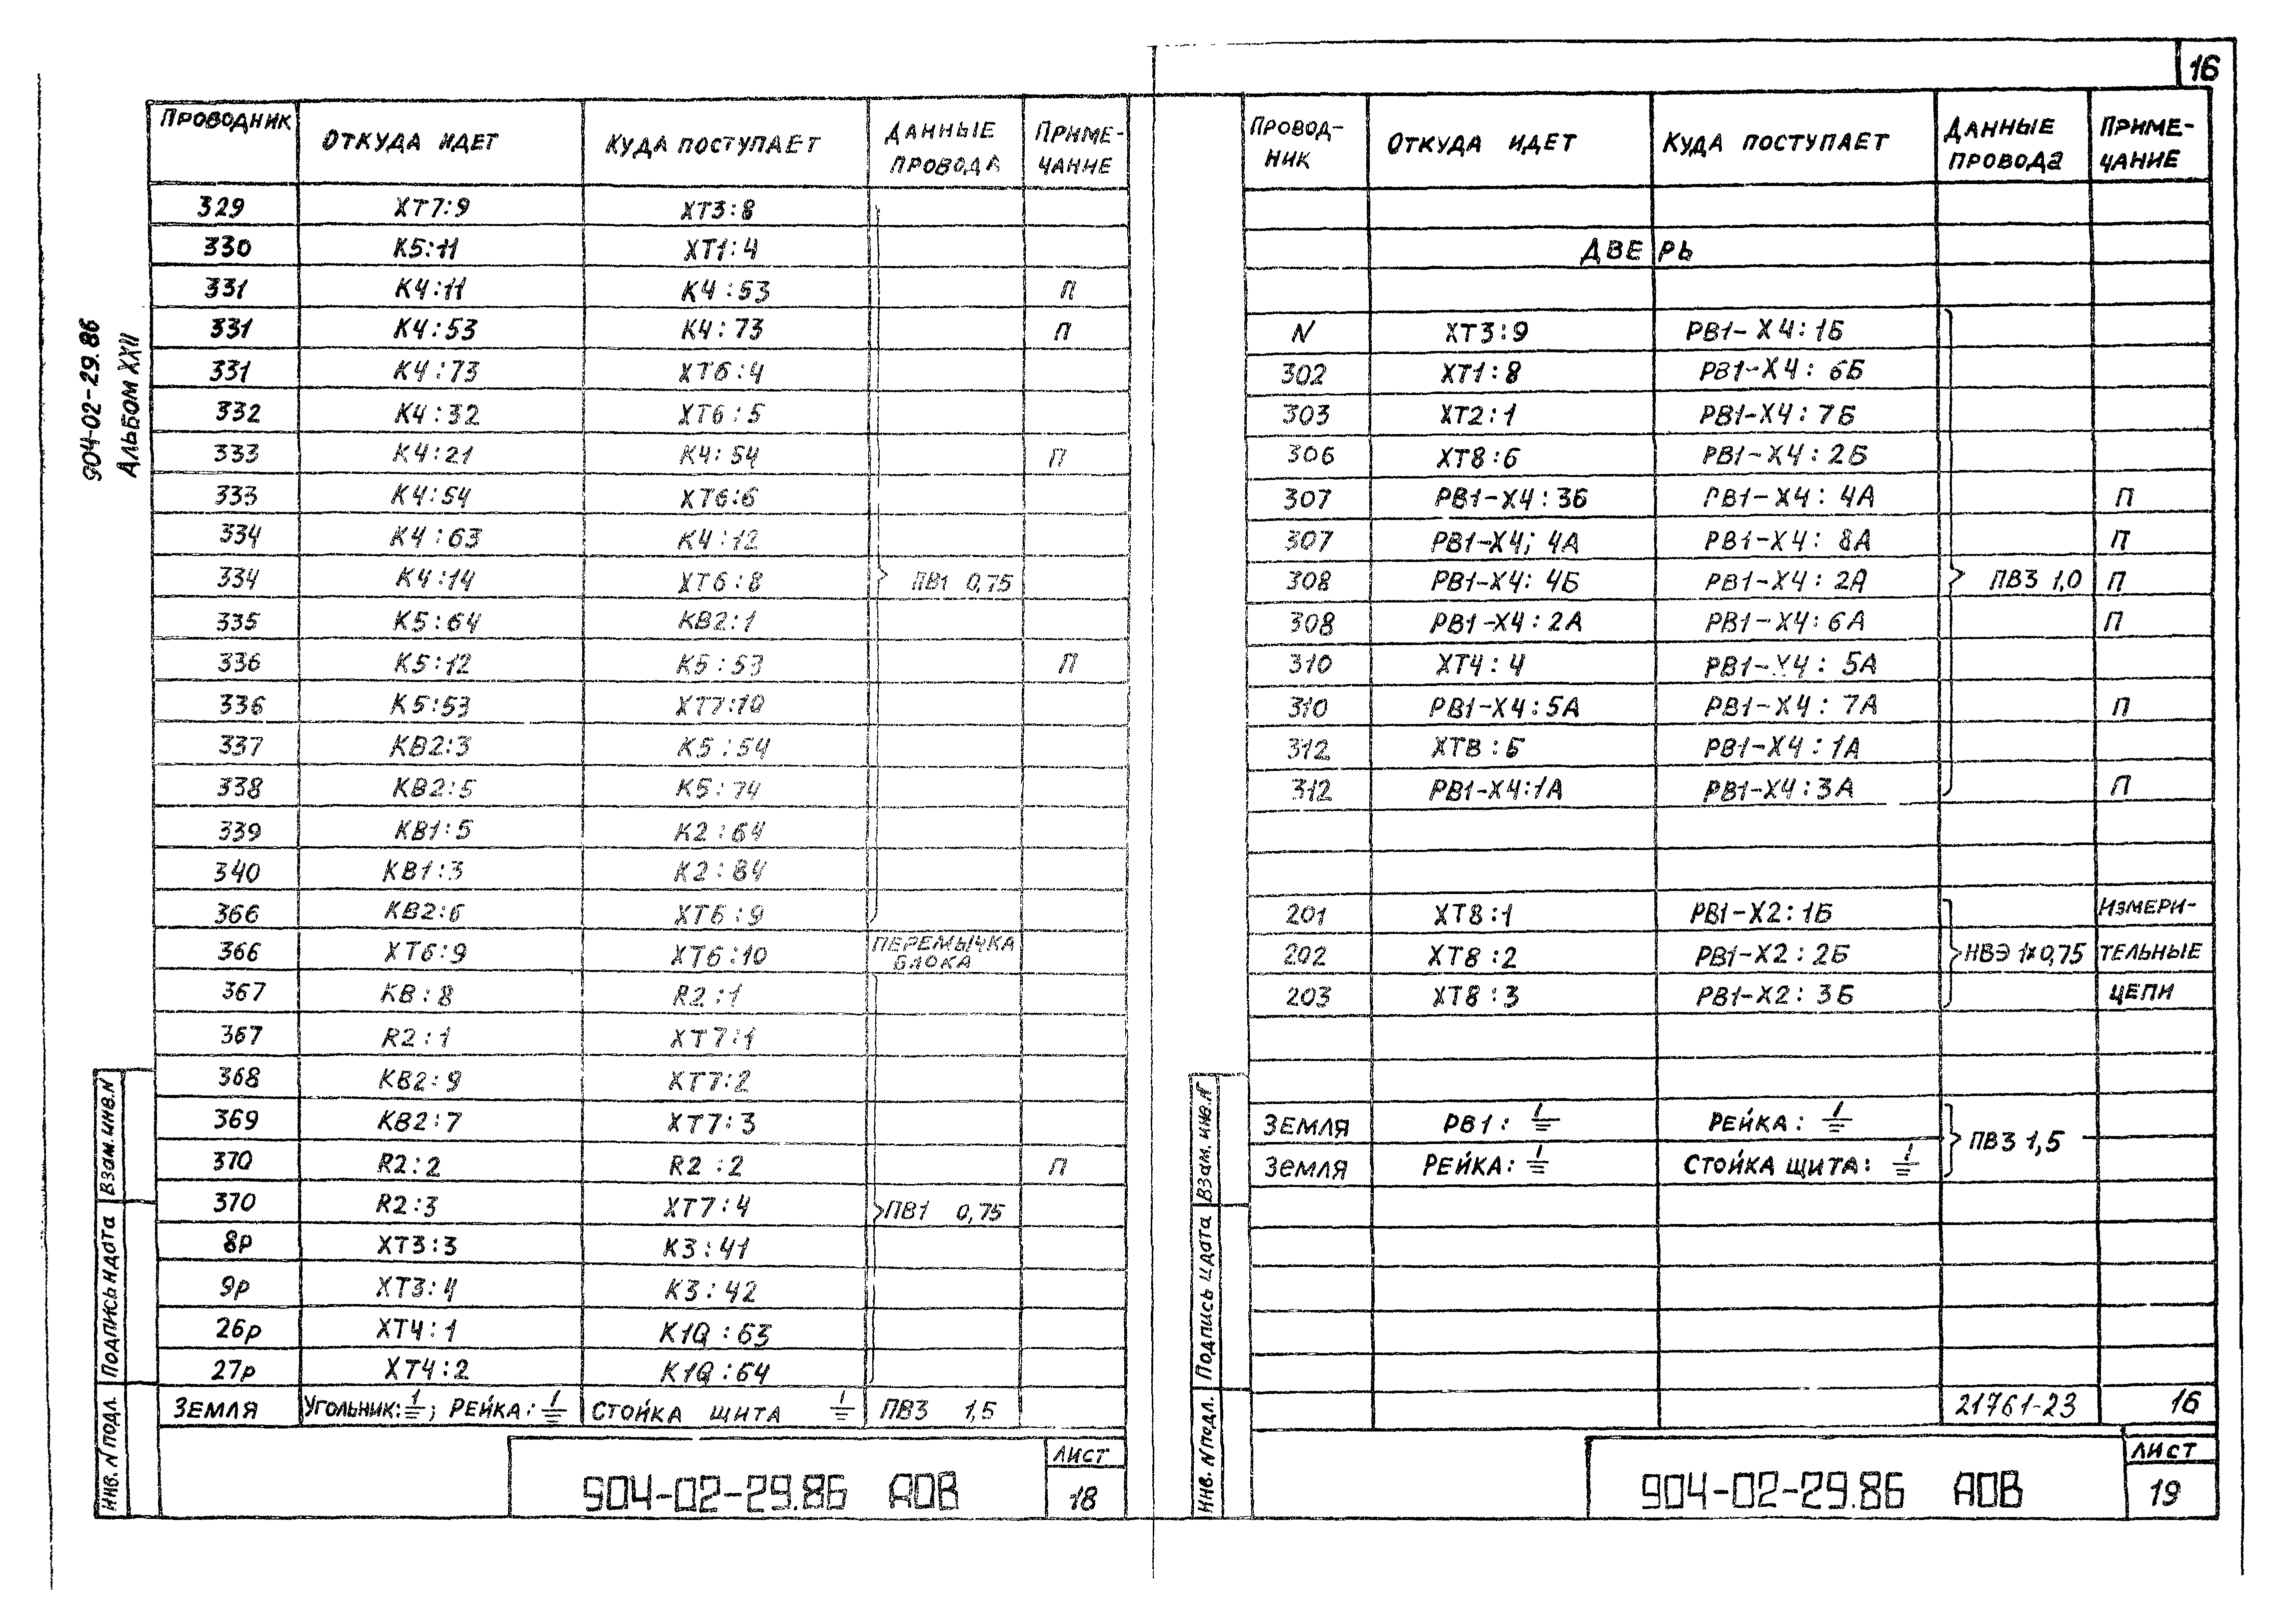 16
904-02-29.86
АЛЬБОМ XXII
ПРОВОДНИК ОТКУДА ИДЕТ КУДА ПОСТУПАЕТ ДАННЫЕ ПРОВОДА ПРИМЕ-ЧАНИЕ
329 XT7:9 XT3:8
330 K5:11 XT1:4
331 K4:11 K4:53 П
331 K4:53 K4:73 П
331 K4:73 XT6:4
332 K4:32 XT6:5
333 K4:21 K4:54 П
333 K4:54 XT6:6
334 K4:63 K4:12
334 K4:14 XT6:8 ПВ1 0,75
335 K5:64 KB2:1
336 K5:12 K5:53 П
336 K5:53 XT7:10
337 KB2:3 K5:54
338 KB2:5 K5:74
339 KB1:5 K2:64
340 KB1:3 K2:84
366 KB2:6 XT6:9
366 XT6:9 XT6:10 ПЕРЕМЫЧКА БЛОКА
367 KB:8 R2:1
367 R2:1 XT7:1
368 KB2:9 XT7:2
369 KB2:7 XT7:3
370 R2:2 R2:2 П
370 R2:3 XT7:4 ПВ1 0,75
8р XT3:3 K3:41
9р XT3:4 K3:42
26р XT4:1 K1Q:63
27р XT4:2 K1Q:64
ЗЕМЛЯ УГОЛЬНИК:⏚; РЕЙКА:⏚ СТОЙКА ЩИТА ⏚ ПВ3 1,5
904-02-29.86 АОВ
ЛИСТ
18
ИНВ. N ПОДЛ. ПОДПИСЬ И ДАТА ВЗАМ. ИНВ. N
ПРОВОД-НИК ОТКУДА ИДЕТ КУДА ПОСТУПАЕТ ДАННЫЕ ПРОВОДА ПРИМЕ-ЧАНИЕ
ДВЕРЬ
N XT3:9 PB1-X4:1Б
302 XT1:8 PB1-X4:6Б
303 XT2:1 PB1-X4:7Б
306 XT8:6 PB1-X4:2Б
307 PB1-X4:3Б PB1-X4:4А П
307 PB1-X4; 4А PB1-X4:8А П
308 PB1-X4:4Б PB1-X4:2А ПВ3 1,0 П
308 PB1-X4:2А PB1-X4:6А П
310 XT4:4 PB1-X4:5А
310 PB1-X4:5А PB1-X4:7А П
312 XT8:5 PB1-X4:1А
312 PB1-X4:1А PB1-X4:3А П
201 XT8:1 PB1-X2:1Б ИЗМЕРИ-
202 XT8:2 PB1-X2:2Б НВЭ 1х0,75 ТЕЛЬНЫЕ
203 XT8:3 PB1-X2:3Б ЦЕПИ
ЗЕМЛЯ PB1:⏚ РЕЙКА:⏚
ПВ3 1,5
ЗЕМЛЯ РЕЙКА:⏚ СТОЙКА ЩИТА:⏚
21761-23 16
904-02-29.86 АОВ
ЛИСТ
19
ИНВ. N ПОДЛ. ПОДПИСЬ И ДАТА ВЗАМ. ИНВ. N